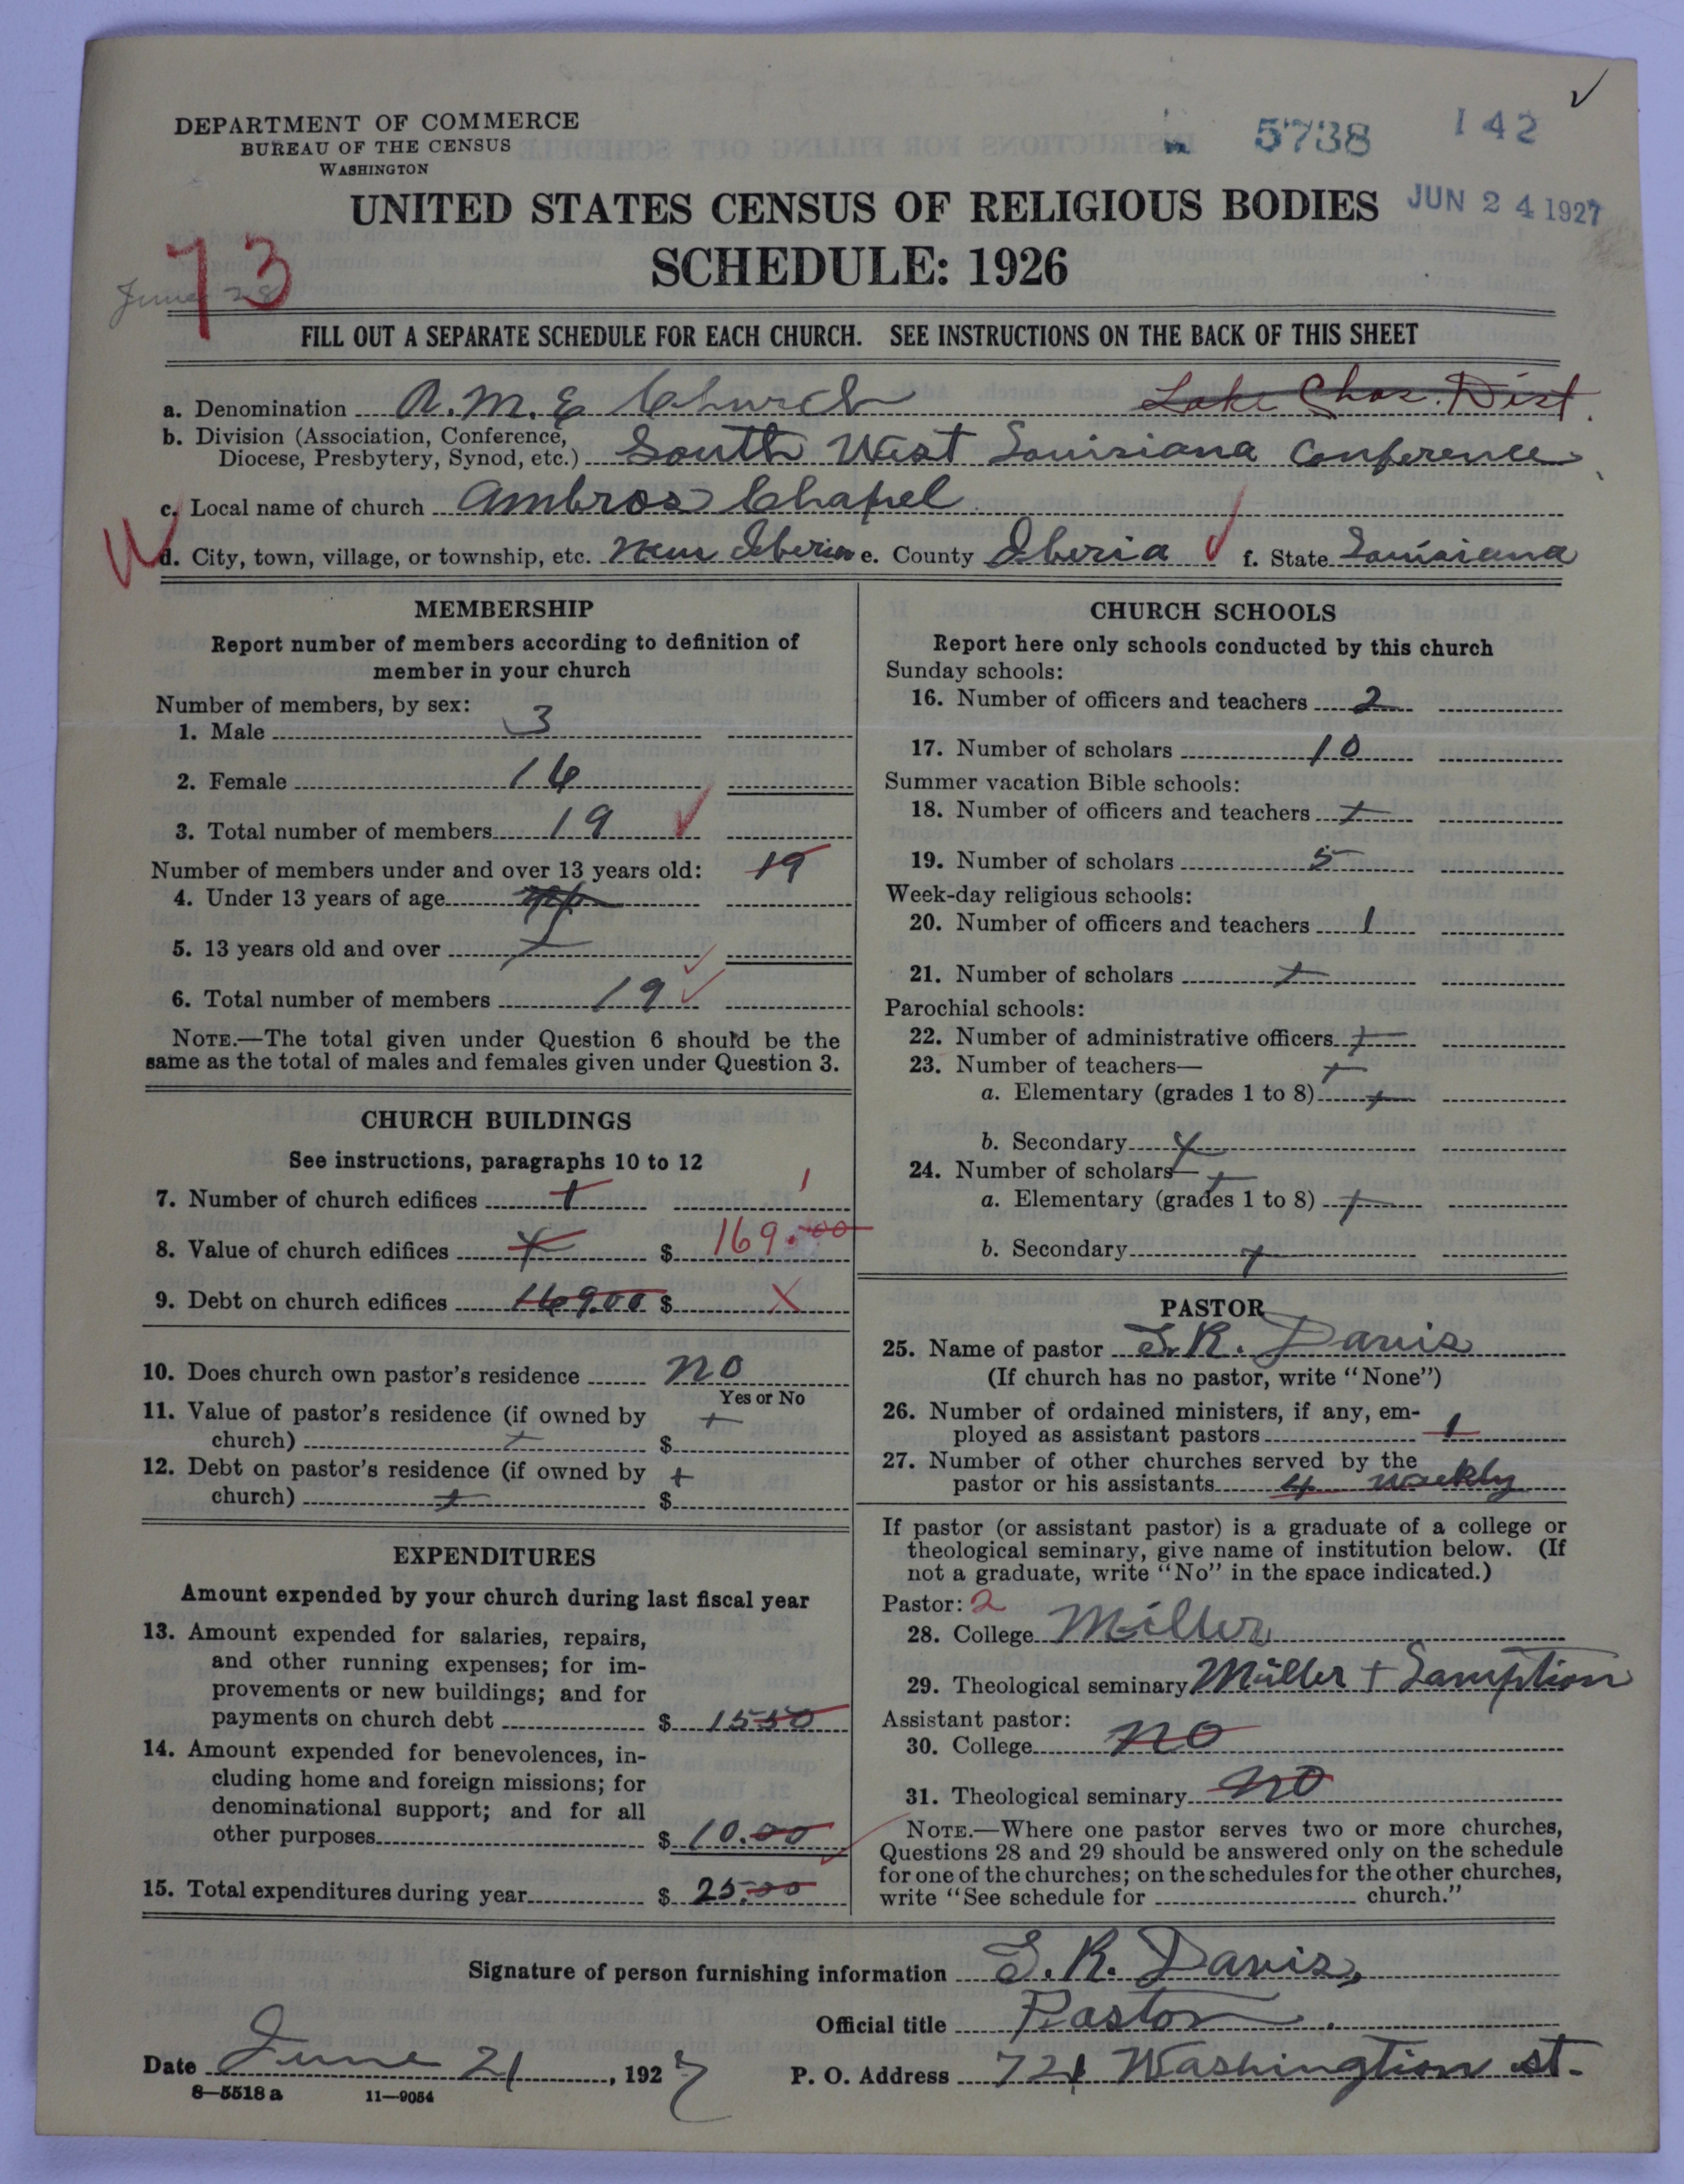 DEPARTMENT OF COMMERCE
BUREAU OF THE CENSUS
WASHINGTON
5738 142
UNITED STATES CENSUS OF RELIGIOUS BODIES
JUN 24 1927
SCHEDULE: 1926
73
June 28
FILL OUT A SEPARATE SCHEDULE FOR EACH CHURCH. SEE INSTRUCTIONS ON THE BACK OF THIS SHEET
a. Denomination A.M.E Church Lake Chas. Dist.
b. Division (Association, Conference,
Diocese, Presbytery, Synod, etc.) South West Louisiana Conference
c. Local name of church Ambros Chapel
d. City, town, village, or township, etc. New Iberia e. County Iberia f. State Louisiana
MEMBERSHIP
Report number of members according to definition of
member in your church
Number of members, by sex:
1. Male 3
2. Female 16
3. Total number of members 19
Number of members under and over 13 years old: 19
4. Under 13 years of age
5. 13 years old and over
6. Total number of members 19
NOTE.—The total given under Question 6 should be the
same as the total of males and females given under Question 3.
CHURCH BUILDINGS
See instructions, paragraphs 10 to 12
7. Number of church edifices + 1
8. Value of church edifices + $ 169.00
9. Debt on church edifices 169.00 $ X
10. Does church own pastor's residence no
Yes or No
11. Value of pastor's residence (if owned by +
church) + $
12. Debt on pastor's residence (if owned by +
church) + $
EXPENDITURES
Amount expended by your church during last fiscal year
13. Amount expended for salaries, repairs,
and other running expenses; for im-
provements or new buildings; and for
payments on church debt $ 1550
14. Amount expended for benevolences, in-
cluding home and foreign missions; for
denominational support; and for all
other purposes $ 10.00
15. Total expenditures during year $ 25.00
CHURCH SCHOOLS
Report here only schools conducted by this church
Sunday schools:
16. Number of officers and teachers 2
17. Number of scholars 10
Summer vacation Bible schools:
18. Number of officers and teachers +
19. Number of scholars 5
Week-day religious schools:
20. Number of officers and teachers 1
21. Number of scholars +
Parochial schools:
22. Number of administrative officers +
23. Number of teachers— +
a. Elementary (grades 1 to 8) +
b. Secondary +
24. Number of scholars— +
a. Elementary (grades 1 to 8) +
b. Secondary +
PASTOR
25. Name of pastor S.R. Davis
(If church has no pastor, write "None")
26. Number of ordained ministers, if any, em-
ployed as assistant pastors 1
27. Number of other churches served by the
pastor or his assistants 4 weekly
If pastor (or assistant pastor) is a graduate of a college or
theological seminary, give name of institution below. (If
not a graduate, write "No" in the space indicated.)
Pastor: 2
28. College Miller
29. Theological seminary Miller + Lamption
Assistant pastor:
30. College no
31. Theological seminary no
NOTE.—Where one pastor serves two or more churches,
Questions 28 and 29 should be answered only on the schedule
for one of the churches; on the schedules for the other churches,
write "See schedule for church."
Signature of person furnishing information S.R. Davis,
Official title Pastor.
Date June 21, 1927 P. O. Address 721 Washingtion st.
8—5518 a 11—9054